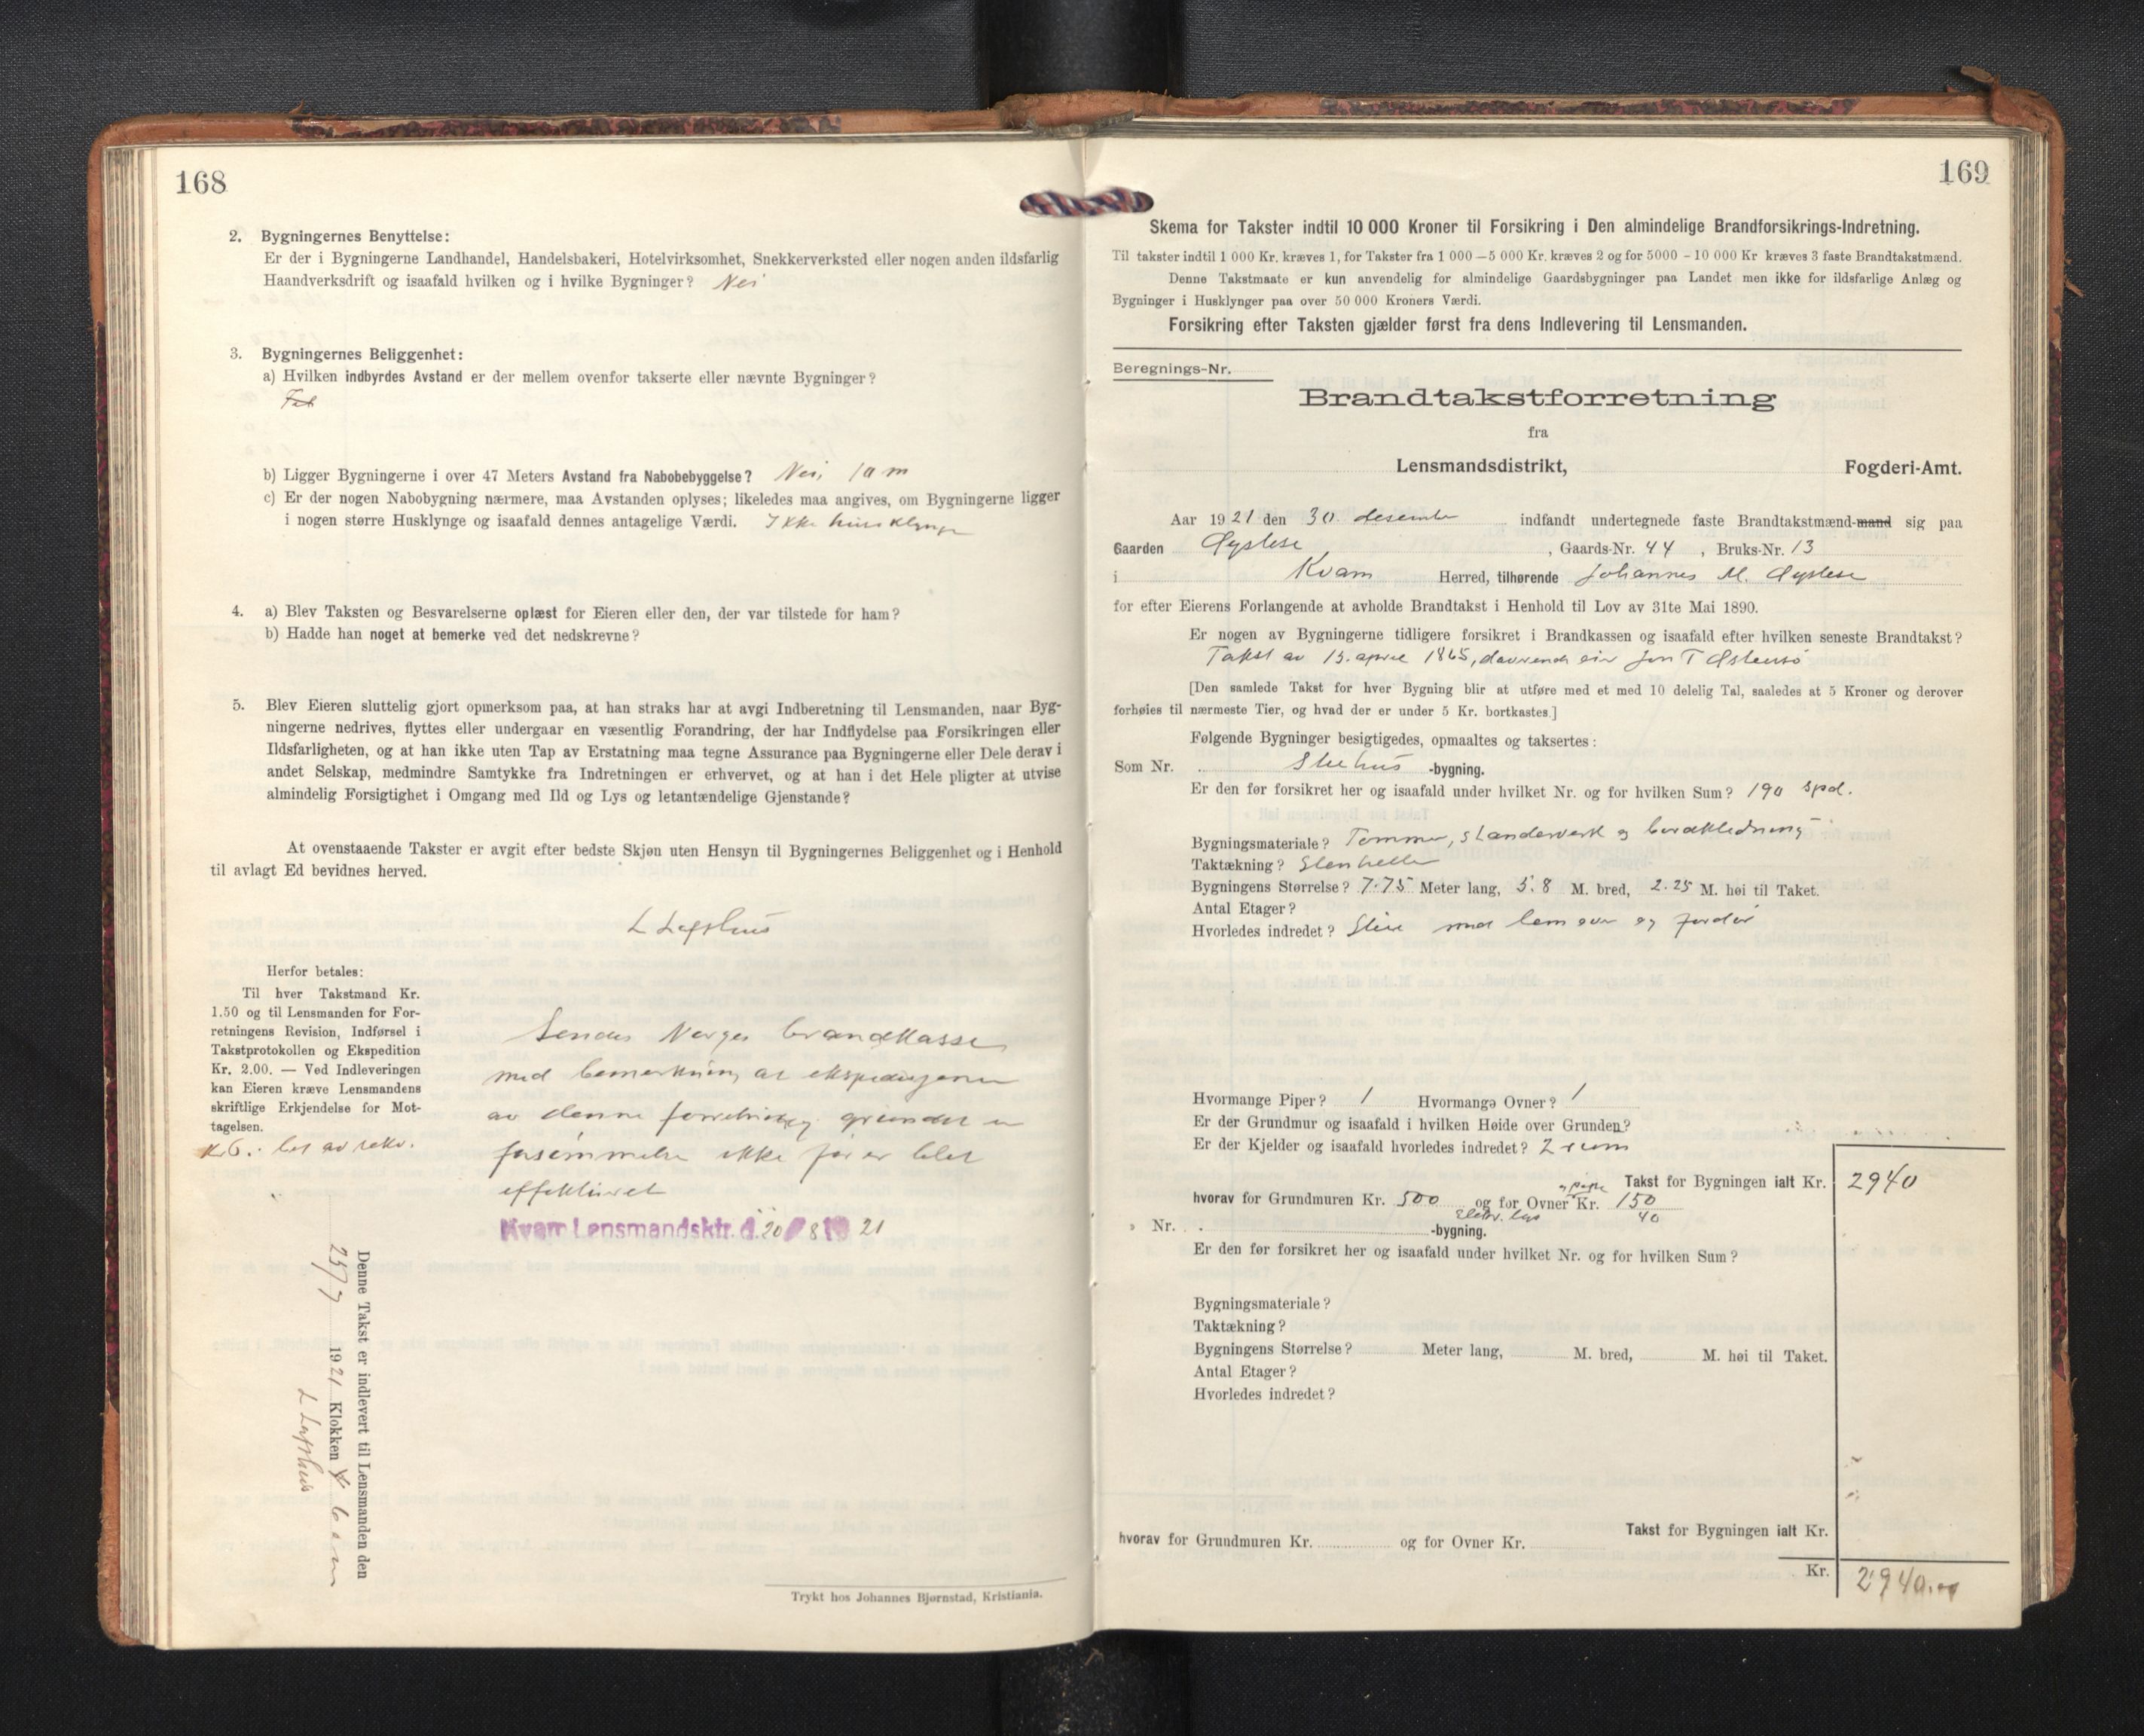 168
2. Bygningernes Benyttelse:
Er der i Bygningerne Landhandel, Handelsbakeri, Hotelvirksomhet, Snekkerverksted eller nogen anden ildsfarlig
Haandverksdrift og isaafald hvilken og i hvilke Bygninger? Nei
3. Bygningernes Beliggenhet:
a) Hvilken indbyrdes Avstand er der mellem ovenfor takserte eller nævnte Bygninger?
b) Ligger Bygningerne i over 47 Meters Avstand fra Nabobebyggelse? Nei, 10 m
c) Er der nogen Nabobygning nærmere, maa Avstanden oplyses; likeledes maa angives, om Bygningerne ligger
i nogen større Husklynge og isaafald dennes antagelige Værdi. Ikke husklynge
4. a) Blev Taksten og Besvarelserne oplæst for Eieren eller den, der var tilstede for ham?
b) Hadde han noget at bemerke ved det nedskrevne?
5. Blev Eieren sluttelig gjort opmerksom paa, at han straks har at avgi Indberetning til Lensmanden, naar Byg-
ningerne nedrives, flyttes eller undergaar en væsentlig Forandring, der har Indflydelse paa Forsikringen eller
Ildsfarligheten, og at han ikke uten Tap av Erstatning maa tegne Assurance paa Bygningerne eller Dele derav i
andet Selskap, medmindre Samtykke fra Indretningen er erhvervet, og at han i det Hele pligter at utvise
almindelig Forsigtighet i Omgang med Ild og Lys og letantændelige Gjenstande?
At ovenstaaende Takster er avgit efter bedste Skjøn uten Hensyn til Bygningernes Beliggenhet og i Henhold
til avlagt Ed bevidnes herved.
L Lofthus
Herfor betales:
Til hver Takstmand Kr.
1.50 og til Lensmanden for For-
retningens Revision, Indførsel i
Takstprotokollen og Ekspedition
Kr. 2.00. — Ved Indleveringen
kan Eieren kræve Lensmandens
skriftlige Erkjendelse for Mot-
tagelsen.
Kr 6.- bet av rekv.
Sendes Norges brandkasse
med bemerkning at ekspedisjonen
av denne forretning grundet en
forsømmelse ikke før er blet
effektuert
Kvam Lensmandsktr. d. 20/8 1921
Denne Takst er indlevert til Lensmanden den
25/7 1921 Klokken
L Lofthus
Trykt hos Johannes Bjørnstad, Kristiania.
169
Skema for Takster indtil 10 000 Kroner til Forsikring i Den almindelige Brandforsikrings-Indretning.
Til takster indtil 1 000 Kr. kræves 1, for Takster fra 1 000 — 5 000 Kr. kræves 2 og for 5000 - 10 000 Kr kræves 3 faste Brandtakstmænd.
Denne Takstmaate er kun anvendelig for almindelige Gaardsbygninger paa Landet men ikke for ildsfarlige Anlæg og
Bygninger i Husklynger paa over 50 000 Kroners Værdi.
Forsikring efter Taksten gjælder først fra dens Indlevering til Lensmanden.
Beregnings-Nr.
Brandtakstforretning
fra
Lensmandsdistrikt, Fogderi-Amt.
Aar 1921 den 30. desember indfandt undertegnede faste Brandtakstmænd-mand sig paa
Gaarden Øystese, Gaards-Nr. 44, Bruks-Nr. 13
i Kvam Herred, tilhørende Johannes M. Øystese
for efter Eierens Forlangende at avholde Brandtakst i Henhold til Lov av 31te Mai 1890.
Er nogen av Bygningerne tidligere forsikret i Brandkassen og isaafald efter hvilken seneste Brandtakst?
Takst av 15. april 1865, daværende eier Jon T Østensø
[Den samlede Takst for hver Bygning blir at utføre med et med 10 delelig Tal, saaledes at 5 Kroner og derover
forhøies til nærmeste Tier, og hvad der er under 5 Kr. bortkastes.]
Følgende Bygninger besigtigedes, opmaaltes og taksertes:
Som Nr. Stuehus -bygning.
Er den før forsikret her og isaafald under hvilket Nr. og for hvilken Sum? 190 spd.
Bygningsmateriale? Tømmer, standerverk og bordklædning
Taktækning? Stenheller
Bygningens Størrelse? 7.75 Meter lang, 5.8 M. bred, 2.25 M. høi til Taket.
Antal Etager?
Hvorledes indredet? Stue med lem over og fordør
Hvormange Piper? 1 Hvormange Ovner? 1
Er der Grundmur og isaafald i hvilken Høide over Grunden?
Er der Kjelder og isaafald hvorledes indredet? 2 rum
Takst for Bygningen ialt Kr. 2940
hvorav for Grundmuren Kr. 500 og for Ovner og pipe Kr. 150
elektr. lys 40
Nr. -bygning.
Er den før forsikret her og isaafald under hvilket Nr. og for hvilken Sum?
Bygningsmateriale?
Taktækning?
Bygningens Størrelse? Meter lang, M. bred, M. høi til Taket.
Antal Etager?
Hvorledes indredet?
Takst for Bygningen ialt Kr.
hvorav for Grundmuren Kr. og for Ovner Kr.
Kr. 2940.00